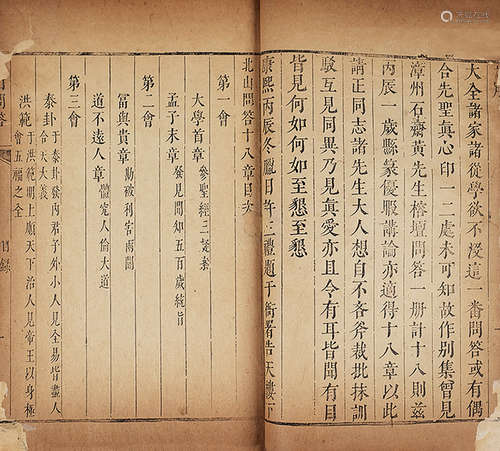 大全諸家諸從學欲不沒這一番問答或有偶
合先聖真心印一二處未可知故作別集曾見
漳州石齋黃先生榕壇問答一册計十八則茲
丙辰一歲縣篆優暇講論亦適得十八章以此
請正同志諸先生大人想自不吝斧裁批抹訓
駁互見同異乃見真愛亦且今有耳皆聞有目
皆見何如何如至懇至懇
康熙丙辰冬臘月許三禮題于衙署告天樓下
北山問答十八章目次
第一會
大學首章 參聖經三疑案
孟子末章 發見聞知五百歲統旨
第二會
富與貴章 勘破利害兩關
道不遠人章 體究人倫大道
第三會
泰卦 于泰卦發内君子外小人見全易皆盡人合天大義
洪範 于洪範明上順天下治人見帝王以身極會五福之全
問答
目錄